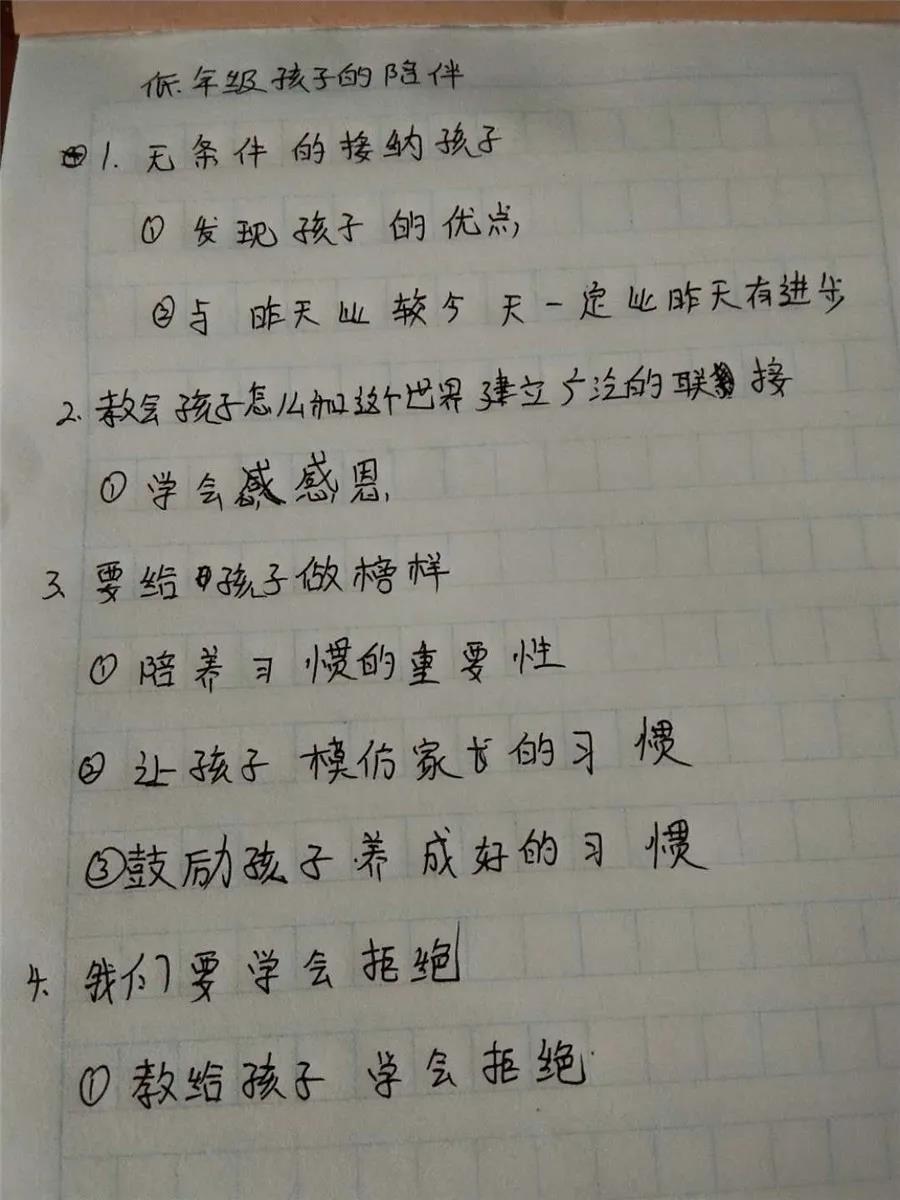 低年级孩子的陪伴
1. 无条件的接纳孩子
① 发现孩子的优点,
②与昨天比较今天一定比昨天有进步
2. 教会孩子怎么和这个世界建立广泛的联接
① 学会感恩,
3. 要给孩子做榜样
① 陪养习惯的重要性
② 让孩子模仿家长的习惯
③鼓励孩子养成好的习惯
4. 我们要学会拒绝
① 教给孩子学会拒绝.